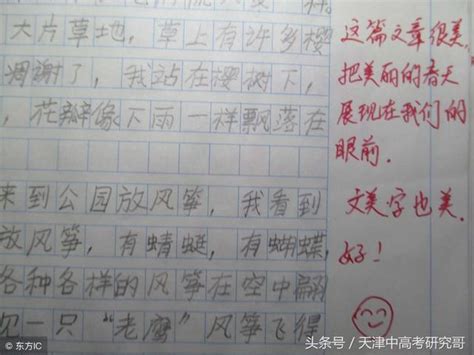 大片草地，草上有许多樱
凋谢了，我站在樱树下，
，花瓣像下雨一样飘落在
来到公园放风筝，我看到
放风筝，有蜻蜓，有蝴蝶，
各种各样的风筝在空中翩
见一只“老鹰”风筝飞得
这篇文章很美，
把美丽的春天
展现在我们的
眼前．
文美字也美．
好！
东方IC
头条号／天津中高考研究哥